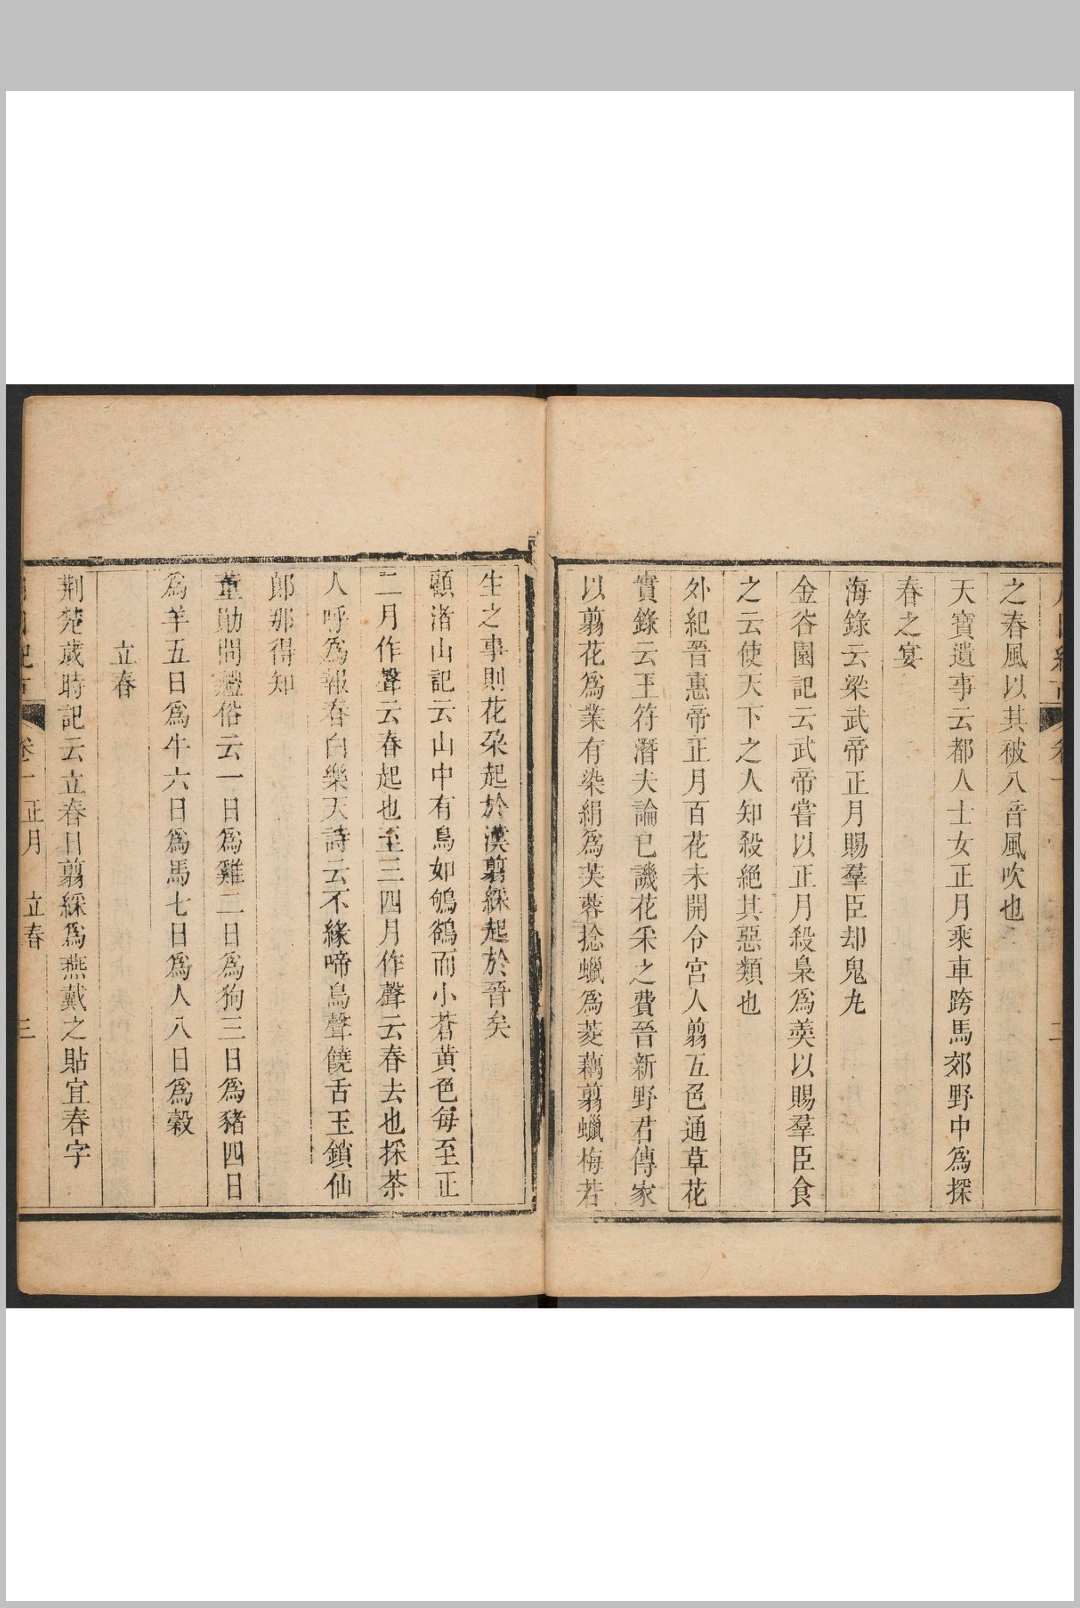 之春風以其被八音風吹也
天寶遺事云都人士女正月乘車跨馬郊野中為探
春之宴
海錄云梁武帝正月賜羣臣却鬼丸
金谷園記云武帝嘗以正月殺梟為羮以賜羣臣食
之云使天下之人知殺絕其惡類也
外紀晉惠帝正月百花未開令宮人翦五色通草花
實錄云王符潛夫論已譏花采之費晉新野君傳家
以翦花為業有染絹為芙蓉捻蠟為菱藕翦蠟梅若
生之事則花朶起於漢翦綵起於晉矣
顧渚山記云山中有鳥如鴝鵒而小蒼黃色每至正
二月作聲云春起也至三四月作聲云春去也採茶
人呼為報春白樂天詩云不緣啼鳥聲饒舌玉鎖仙
郎那得知
董勛問禮俗云一日為雞二日為狗三日為豬四日
為羊五日為牛六日為馬七日為人八日為穀
立春
荆楚歲時記云立春日翦綵為燕戴之貼宜春字
卷一 正月 立春 三